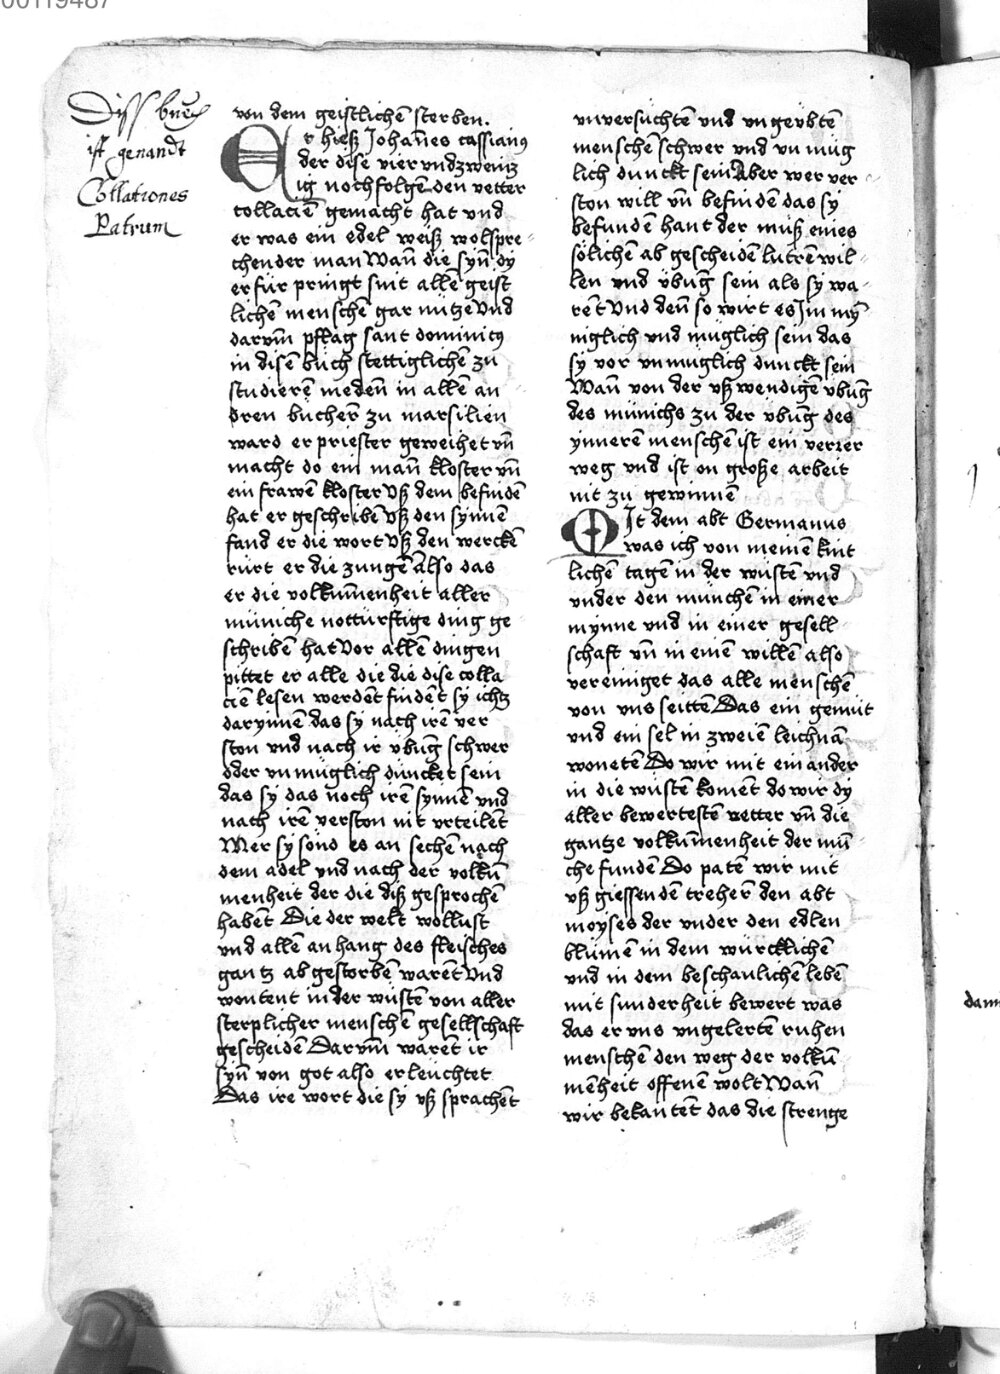 00119487
Diss buch
ist genandt
Collationes
Patrum
von dem geistlichē sterben.
Er hiesz Johañes cassianꝯ
der dise vier vndzwentz
ig nochfolgenden vetter
collaciē gemacht hat vnd
er was ein edel weisz wolspre-
chender man Wañ die syñ dy
er für pringt sint alle geist
lichē menschē gar nütze Vnd
darvm̄ pflag sant dominicꝯ
in disē büch stettiglichē zu
studierē meden̄ in allē an
dren bucher̄ zu marsilien
ward er priester geweihet vn̄
macht do ein man̄ kloster vn̄
ein frawē kloster Vsz dem befindē
hat er geschribē Vsz den synnē
fand er die wort Vsz den werckē
rürt er die zungē Also das
er die volkūmenheit aller
müniche notturftige ding ge
schribē hat Vor allē dingen
pittet er alle die die dise colla
ciē lesen werdēt findēt sy ichtz
daryinnē das sy nach irē ver
ston vnd nach ir vbūg schwer
oder vnmüglich duncket sein
das sy das noch irē synnē vnd
nach irē verston nit vrteilēt
Mer sy sönd es an sechē nach
dem adel vnd nach der volkū
menheit der die disz gesprochē
habēt Die der welt wollust
vnd allē anhang des fleisches
gantz ab gestorbē warēt Vnd
wontent in der wüstē von aller
sterplicher menschē gesellschaft
gescheidē Darvm̄ warēt ir
syñ von got also erleuchtet
Das ire wort die sy vsz sprachēt
vnversüchtē vnd vngeübtē
menschē schwer vnd vn müg
lich dunckt sein Aber wer ver
ston will vn̄ befindē das sy
befundē hant der müsz eines
sölichē ab gescheidē lutrē wil-
len vnd übūg sein als sy wa-
rēt Vnd den̄ so wirt es Im mȳ
niglich vnd müglich sein das
sy vor vnmüglich dunckt sein
Wañ von der vszwendigē vbūg
des münichs zu der vbūg des
ynnerē menschē ist ein verrer
weg vnd ist on grosze arbeit
nit zu gewinnē
Mit dem abt Germanus
was ich von meinē kint
lichē tagē in der wüstē vnd
vnder den münchē in einer
mynne vnd in einer gesell-
schaft vn̄ in einē willē also
vereiniget das alle menschē
von vns seittē Das ein gemüt
vnd ein sel in zweiē leichnā
wonetē Do wir mit ein ander
in die wüstē komēt do wir dy
aller bewertestē vetter vn̄ die
gantze volkūmenheit der mü-
che fundē Do patē wir mit
vsz giessendē treherē den abt
moyses der vnder den edlen
blümē in dem würcklichē
vnd in dem beschaulichē lebē
mit sunderheit bewert was
das er vns vngelertē ruhen
menschē den weg der volkū
mēheit offenē wolt Wañ
wir bekantēt das die strenge
dann